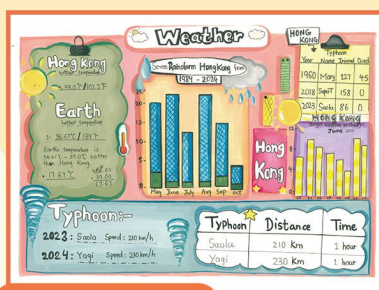 Weather
Hong Kong
hottest temperature
Earth
hottest temperature
Earth's temperature is
hotter
than Hong Kong
17.67℃
Rainstorm Hong Kong
1984 - 2024
25
20
15
10
5
0
May June July Aug Sep Oct
HONG
KONG
Typhoon
Year Name
1960 Mary 127 45
2018 158 0
2023 Saola 86 0
Hong Kong
June
Hong
Kong
Typhoon:-
2023: Saola Speed: 210 km/h
2024: Yagi Speed: 230 km/h
Typhoon Distance Time
Saola 210 Km 1 hour
Yagi 230 Km 1 hour